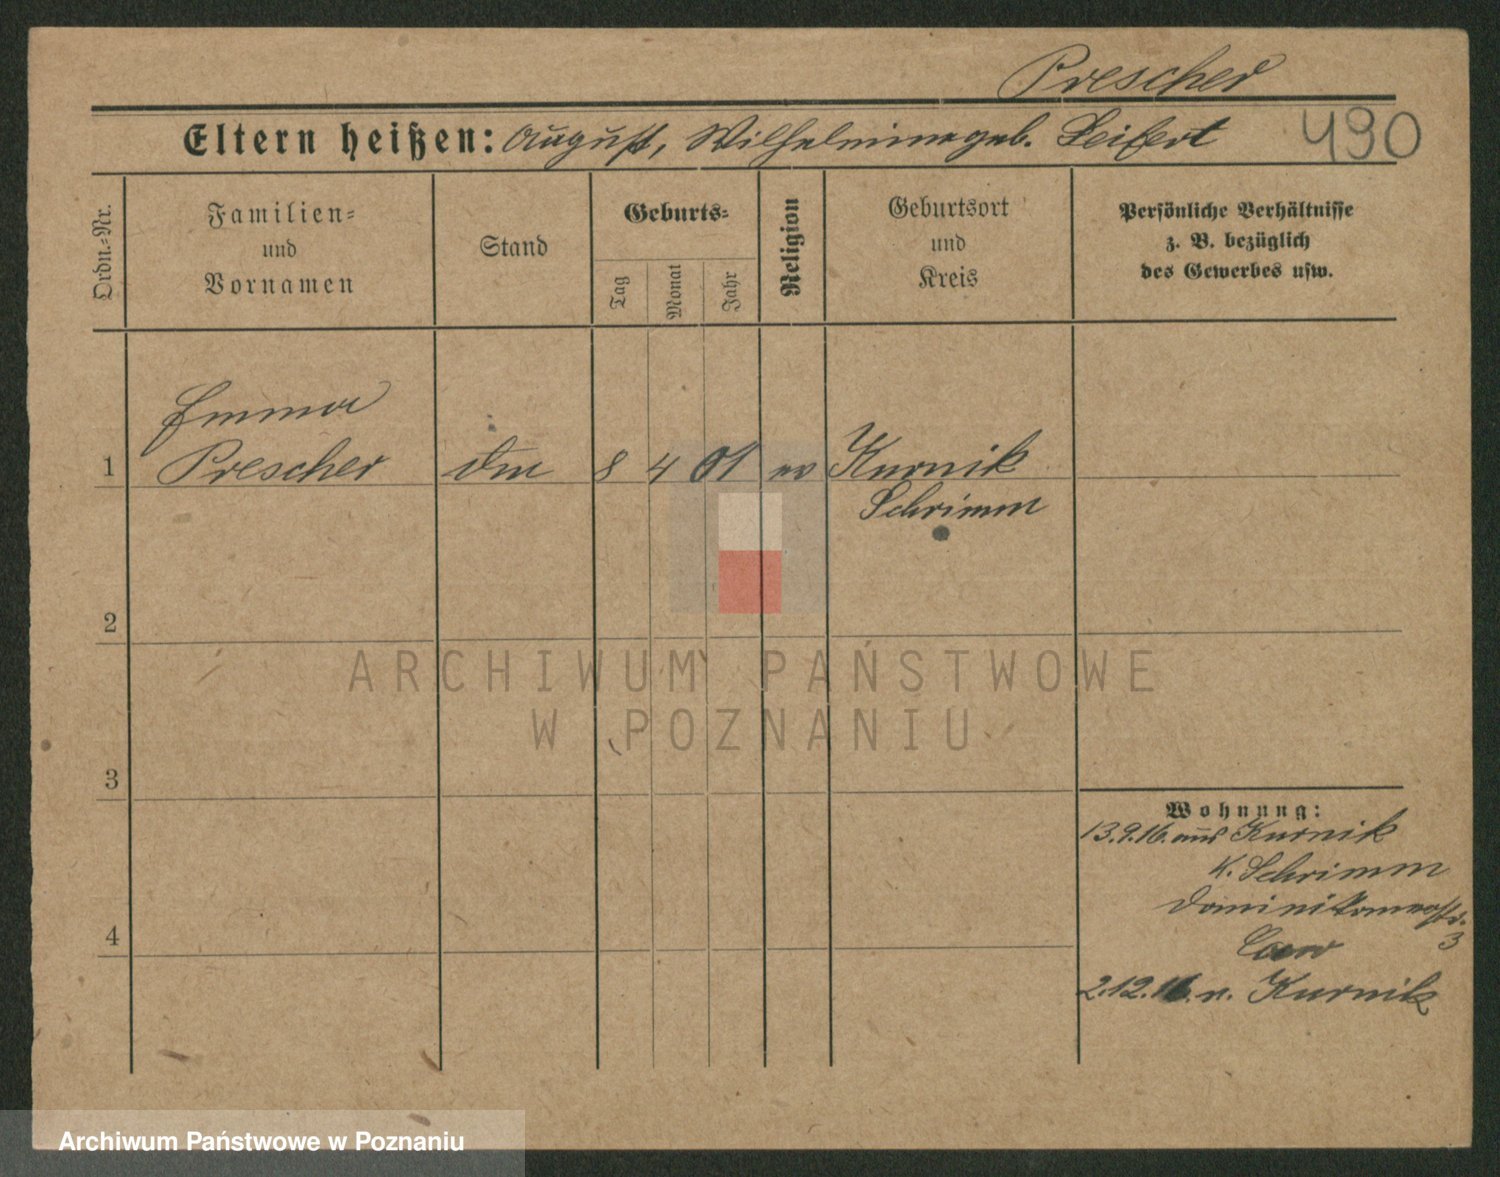 Prescher
Eltern heißen: August, Wilhelmine geb. Seifert 490
Ordn.=Nr.
Familien=
und
Vornamen
Stand
Geburts=
Tag
Monat
Jahr
Religion
Geburtsort
und
Kreis
Persönliche Verhältnisse
z. B. bezüglich
des Gewerbes usw.
Emma
1 Prescher 8 4 01 ev Kurnik
Schrimm
2
3
4
Wohnung:
13.9.16. aus Kurnik
K. Schrimm
Dominikanerstr.
3
2.12.16. n. Kurnik
ARCHIWUM PAŃSTWOWE
W POZNANIU
Archiwum Państwowe w Poznaniu